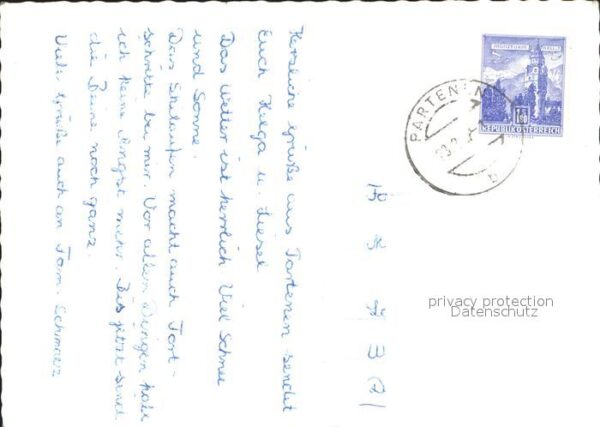 Herzliche Grüße aus Partenen sendet
Euch Helga u. Liesel
Das Wetter ist herrlich Viel Schnee
und Sonne.
Das Skilaufen macht auch Fort-
schritte bei mir. Vor allen Dingen habe
ich keine Angst mehr. Bis jetzt sind
die Beine noch ganz.
Viele Grüße auch an Fam. Schmalz
PARTENEN
b
REPUBLIK ÖSTERREICH
privacy protection
Datenschutz